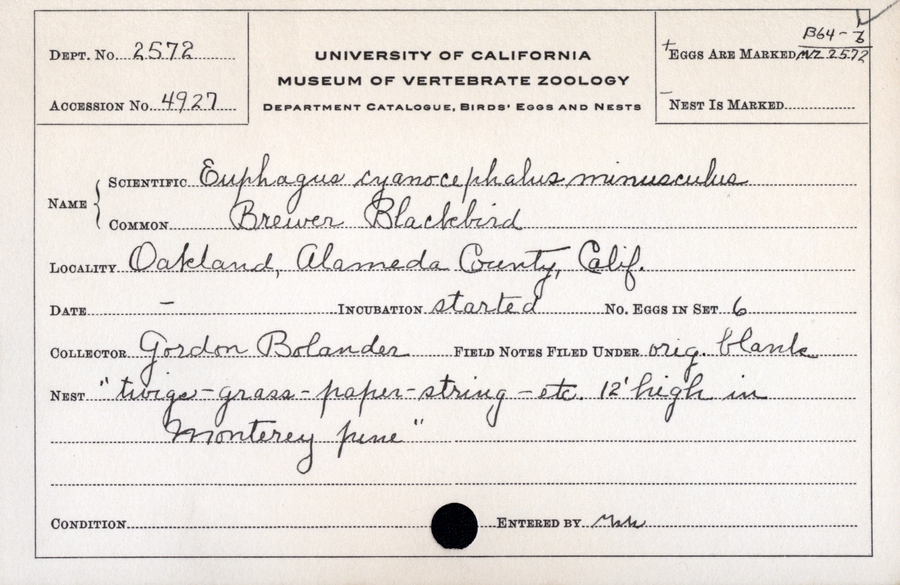 DEPT. No. 2572
ACCESSION No. 4927
UNIVERSITY OF CALIFORNIA
MUSEUM OF VERTEBRATE ZOOLOGY
DEPARTMENT CATALOGUE, BIRDS' EGGS AND NESTS
B64-
+ EGGS ARE MARKED MVZ 2572
– NEST IS MARKED
NAME { SCIENTIFIC Euphagus cyanocephalus minusculus
COMMON Brewer Blackbird
LOCALITY Oakland, Alameda County, Calif.
DATE – INCUBATION started NO. EGGS IN SET 6
COLLECTOR Gordon Bolander FIELD NOTES FILED UNDER orig. blank
NEST "twigs-grass-paper-string-etc. 12' high in
Monterey pine"
CONDITION ENTERED BY